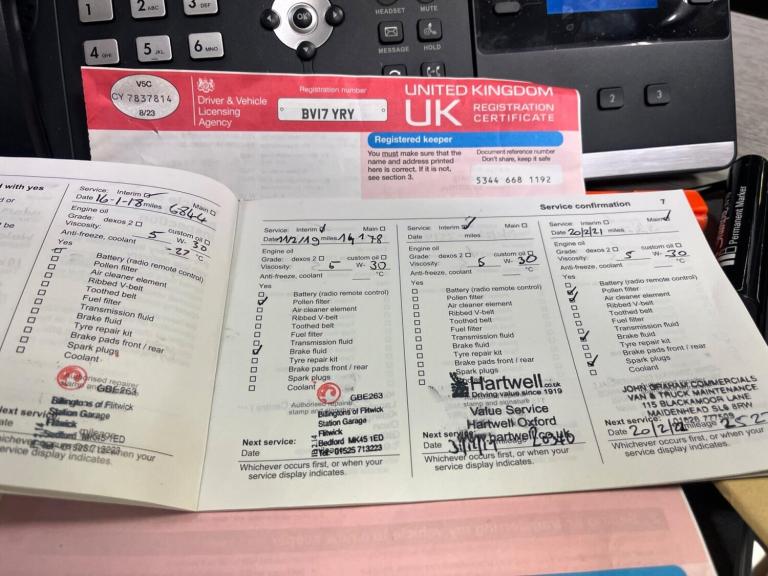 2 ABC
3 DEF
OK
4 GHI
5 JKL
6 MNO
HEADSET
MUTE
MESSAGE
HOLD
2
3
V5C
CY 7837814
8/23
Driver & Vehicle
Licensing
Agency
Registration number
BV17 YRY
UNITED KINGDOM
UK REGISTRATION
CERTIFICATE
Registered keeper
You must make sure that the
name and address printed
here is correct. If it is not,
see section 3.
Document reference number
Don't share, keep it safe
5344 668 1192
Permanent Marker
d with yes
d or
be
Service: Interim Main
Date 16-1-18 miles 6844
Engine oil
Grade: dexos 2 custom oil
Viscosity: 5 W- 30
Anti-freeze, coolant -27 °C
Yes
Battery (radio remote control)
Pollen filter
Air cleaner element
Ribbed V-belt
Toothed belt
Fuel filter
Transmission fluid
Brake fluid
Tyre repair kit
Brake pads front / rear
Spark plugs
Coolant
Authorised repairer
GBE263
Billingtons of Flitwick
Station Garage
Flitwick
Bedford MK45 1ED
Next service
Whichever occurs first, or when your
service display indicates.
Service confirmation 7
Service: Interim Main
Date 11/2/19 miles 14178
Engine oil
Grade: dexos 2 custom oil
Viscosity: 5 W- 30
Anti-freeze, coolant °C
Yes
Battery (radio remote control)
Pollen filter
Air cleaner element
Ribbed V-belt
Toothed belt
Fuel filter
Transmission fluid
Brake fluid
Tyre repair kit
Brake pads front / rear
Spark plugs
Coolant
Authorised repairer
stamp and signature
GBE263
Billingtons of Flitwick
Station Garage
Flitwick
Bedford MK45 1ED
Tel: 01525 713223
Next service:
Date
Whichever occurs first, or when your
service display indicates.
Service: Interim Main
Date miles
Engine oil
Grade: dexos 2 custom oil
Viscosity: 5 W- 30
Anti-freeze, coolant °C
Yes
Battery (radio remote control)
Pollen filter
Air cleaner element
Ribbed V-belt
Toothed belt
Fuel filter
Transmission fluid
Brake fluid
Tyre repair kit
Brake pads front / rear
Spark plugs
Hartwell.co.uk
Driving value since 1919
Value Service
Hartwell Oxford
hartwell.co.uk
Next service:
Date
Whichever occurs first, or when your
service display indicates.
Service: Interim Main
Date 20/2/21 miles
Engine oil
Grade: dexos 2 custom oil
Viscosity: 5 W- 30
Anti-freeze, coolant °C
Yes
Battery (radio remote control)
Pollen filter
Air cleaner element
Ribbed V-belt
Toothed belt
Fuel filter
Transmission fluid
Brake fluid
Tyre repair kit
Brake pads front / rear
Spark plugs
Coolant
JOHN GRAHAM COMMERCIALS
VAN & TRUCK MAINTENANCE
115 BLACKAMOOR LANE
MAIDENHEAD SL6 8RW
Next service:
Date 20/2/22 mileage
Whichever occurs first, or when your
service display indicates.